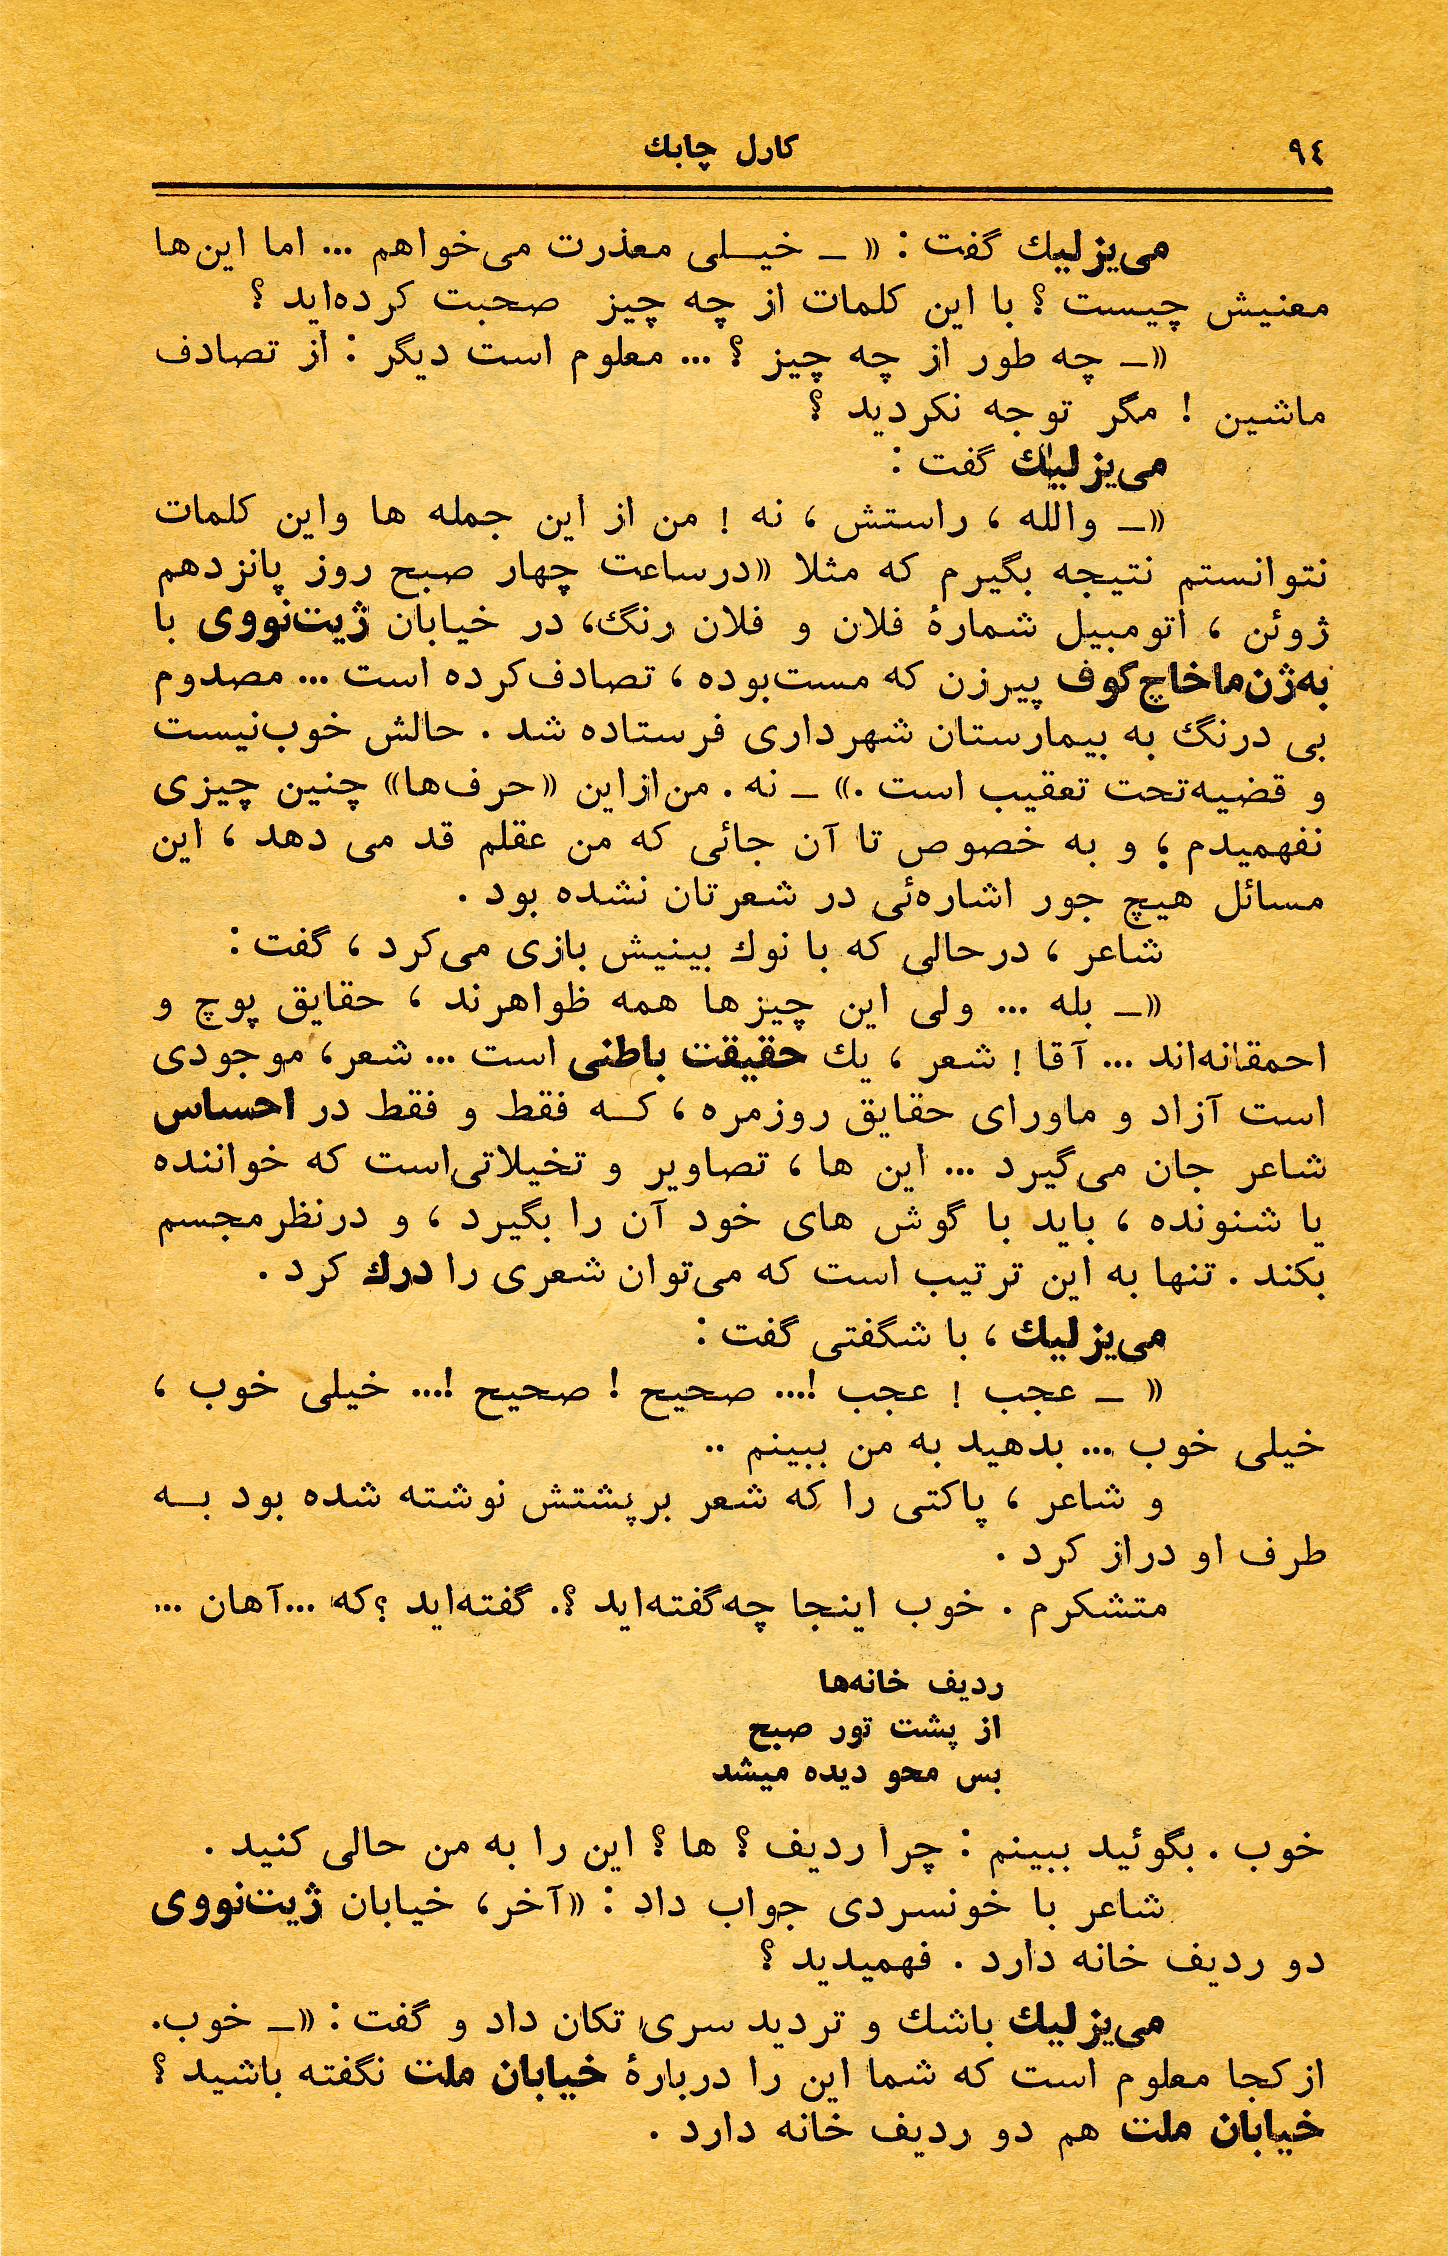 ۹٤
کارل چاپك
می‌یزلیك گفت : « ـ خیـــلی معذرت می‌خواهم ... اما این‌ها
معنیش چیست ؟ با این کلمات از چه چیز صحبت کرده‌اید ؟
«ـ چه طور از چه چیز ؟ ... معلوم است دیگر : از تصادف
ماشین ! مگر توجه نکردید ؟
می‌یزلیك گفت :
«ـ والله ، راستش ، نه ! من از این جمله ها واین کلمات
نتوانستم نتیجه بگیرم که مثلا «درساعت چهار صبح روز پانزدهم
ژوئن ، اتومبیل شمارهٔ فلان و فلان رنگ، در خیابان ژیت‌نووی با
به‌ژن‌ماخاچ‌کوف پیرزن که مست‌بوده ، تصادف‌کرده است ... مصدوم
بی درنگ به بیمارستان شهرداری فرستاده شد . حالش خوب‌نیست
و قضیه‌تحت تعقیب است .» ـ نه . من‌ازاین «حرف‌ها» چنین چیزی
نفهمیدم ؛ و به خصوص تا آن جائی که من عقلم قد می دهد ، این
مسائل هیچ جور اشاره‌ئی در شعرتان نشده بود .
شاعر ، درحالی که با نوك بینیش بازی می‌کرد ، گفت :
«ـ بله ... ولی این چیزها همه ظواهرند ، حقایق پوچ و
احمقانه‌اند ... آقا ! شعر ، یك حقیقت باطنی است ... شعر، موجودی
است آزاد و ماورای حقایق روزمره ، کــه فقط و فقط در احساس
شاعر جان می‌گیرد ... این ها ، تصاویر و تخیلاتی‌است که خواننده
یا شنونده ، باید با گوش های خود آن را بگیرد ، و درنظرمجسم
بکند . تنها به این ترتیب است که می‌توان شعری را درك کرد .
می‌یزلیك ، با شگفتی گفت :
« ـ عجب ! عجب !... صحیح ! صحیح !... خیلی خوب ،
خیلی خوب ... بدهید به من ببینم ..
و شاعر ، پاکتی را که شعر برپشتش نوشته شده بود بــه
طرف او دراز کرد .
متشکرم . خوب اینجا چه‌گفته‌اید ؟. گفته‌اید ؟که ...آهان ...
ردیف خانه‌ها
از پشت تور صبح
بس محو دیده میشد
خوب . بگوئید ببینم : چرا ردیف ؟ ها ؟ این را به من حالی کنید .
شاعر با خونسردی جواب داد : «آخر، خیابان ژیت‌نووی
دو ردیف خانه دارد . فهمیدید ؟
می‌یزلیك باشك و تردید سری تکان داد و گفت : «ـ خوب.
ازکجا معلوم است که شما این را دربارهٔ خیابان ملت نگفته باشید ؟
خیابان ملت هم دو ردیف خانه دارد .